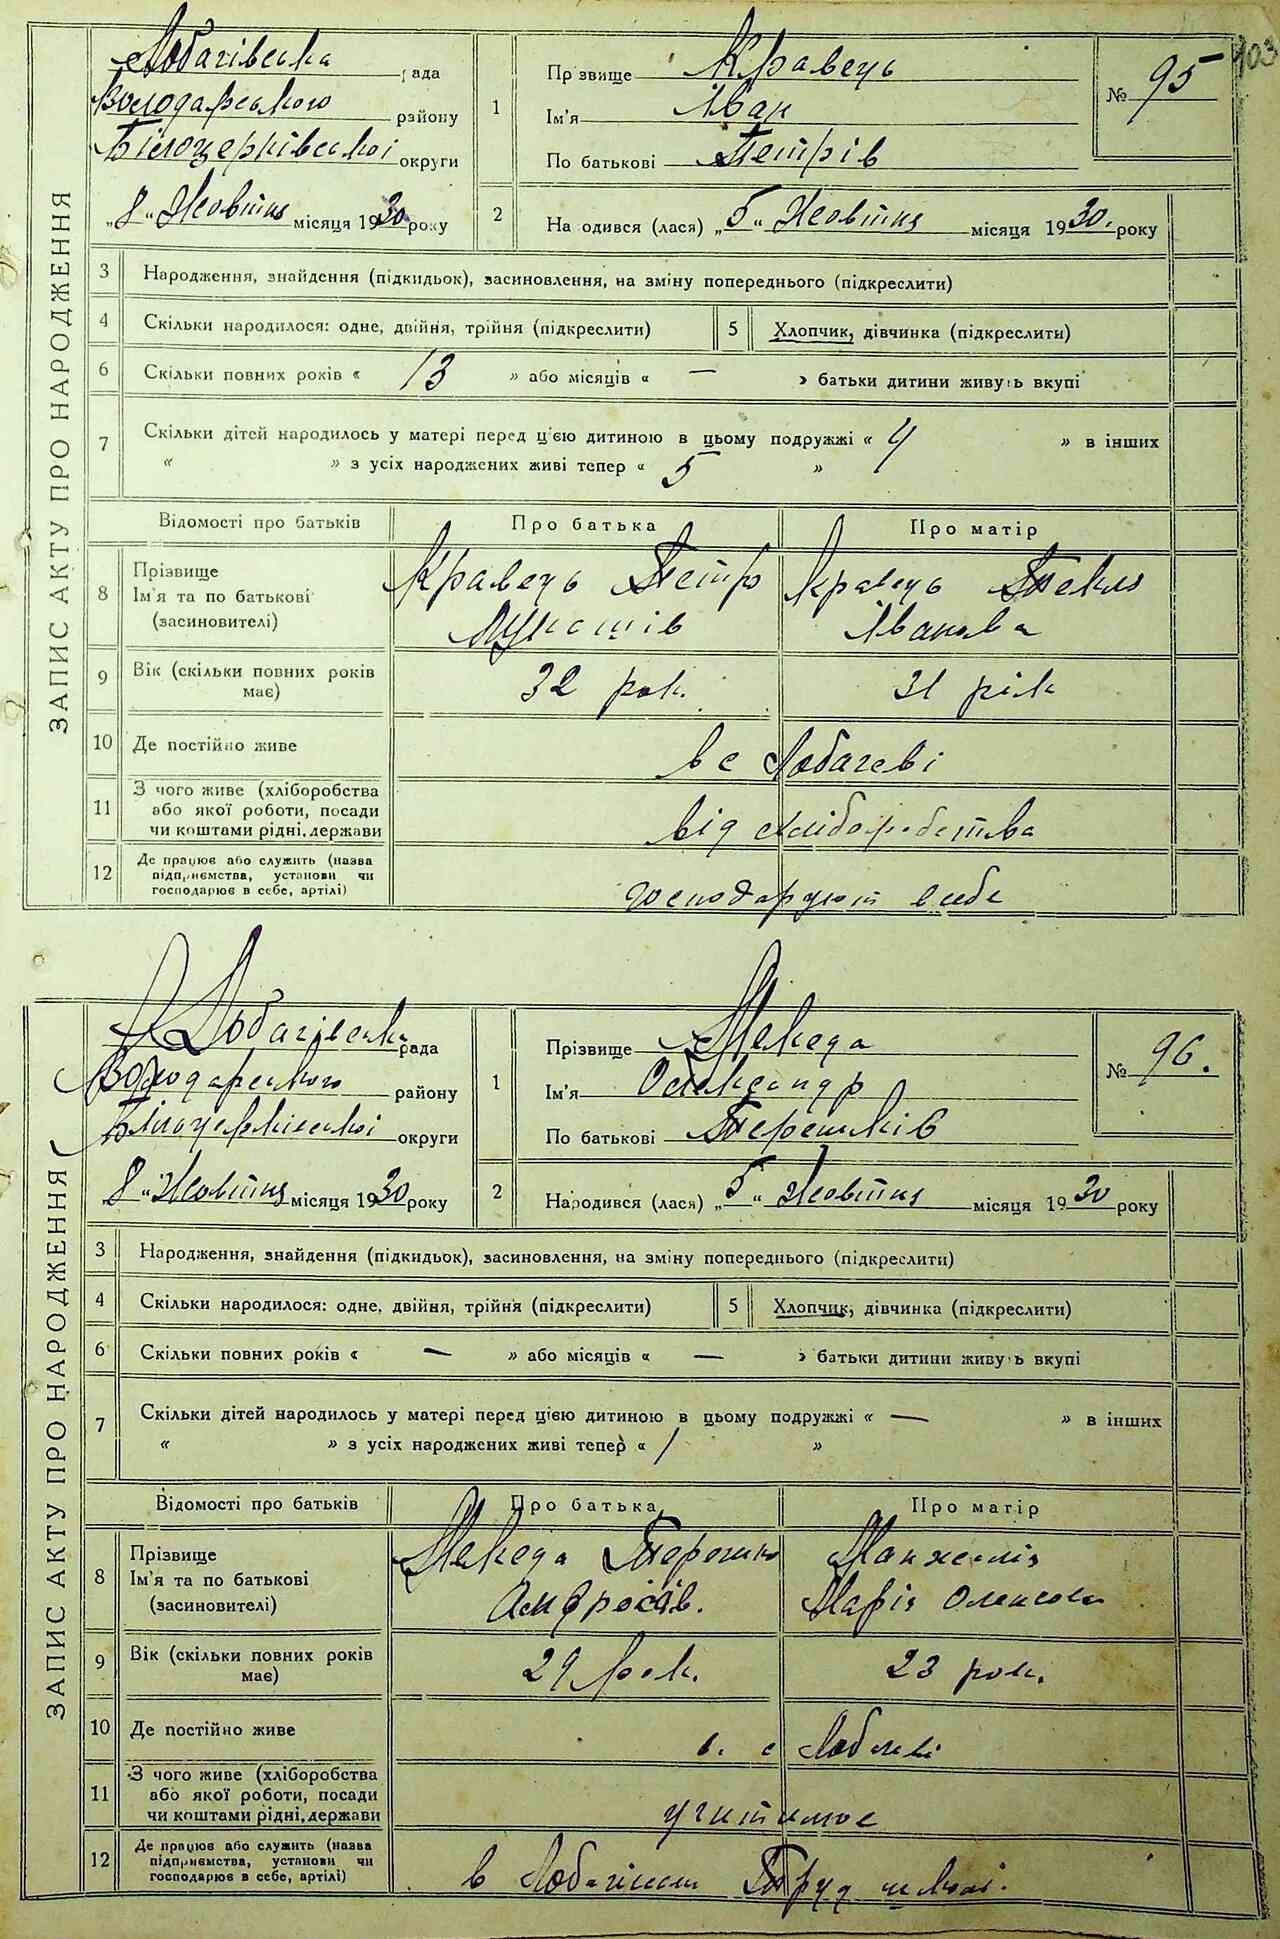 103
ЗАПИС АКТУ ПРО НАРОДЖЕННЯ
Лобачівська рада
Володарського району
Білоцерківської округи
„8“ Жовтня місяця 1930 року
1
Прізвище Кравець
Ім'я Іван
По батькові Петрів
№ 95
2
Народився (лася) „5“ Жовтня місяця 1930. року
3 Народження, знайдення (підкидьок), засиновлення, на зміну попереднього (підкреслити)
4 Скільки народилося: одне, двійня, трійня (підкреслити) 5 Хлопчик, дівчинка (підкреслити)
6 Скільки повних років « 13 » або місяців « — » батьки дитини живуть вкупі
7 Скільки дітей народилось у матері перед цією дитиною в цьому подружжі « 4 » в інших
« » з усіх народжених живі тепер « 5 »
Відомості про батьків Про батька Про матір
8 Прізвище
Ім'я та по батькові
(засиновителі)
Кравець Петро
Лукашів
Кравець Текля
Іванова
9 Вік (скільки повних років
має)
32 рок. 31 рік
10 Де постійно живе в с Лобачеві
11 З чого живе (хліборобства
або якої роботи, посади
чи коштами рідні, держави
від хліборобства
12 Де працює або служить (назва
підприємства, установи чи
господарює в себе, артілі)
господарюют в себе
ЗАПИС АКТУ ПРО НАРОДЖЕННЯ
Лобачівська рада
Володарського району
Білоцерківської округи
8 „Жовтня місяця 1930 року
1
Прізвище Мекеда
Ім'я Олександр
По батькові Терешків
№ 96.
2
Народився (лася) „5“ Жовтня місяця 1930 року
3 Народження, знайдення (підкидьок), засиновлення, на зміну попереднього (підкреслити)
4 Скільки народилося: одне, двійня, трійня (підкреслити) 5 Хлопчик, дівчинка (підкреслити)
6 Скільки повних років « — » або місяців « — » батьки дитини живуть вкупі
7 Скільки дітей народилось у матері перед цією дитиною в цьому подружжі « — » в інших
« » з усіх народжених живі тепер « 1 »
Відомості про батьків Про батька Про матір
8 Прізвище
Ім'я та по батькові
(засиновителі)
Мекеда Терешко
Амбросів.
Марія
9 Вік (скільки повних років
має)
29 рок. 23 рок.
10 Де постійно живе в. с Лобачеві
11 З чого живе (хліборобства
або якої роботи, посади
чи коштами рідні, держави
12 Де працює або служить (назва
підприємства, установи чи
господарює в себе, артілі)
в Труд школі.